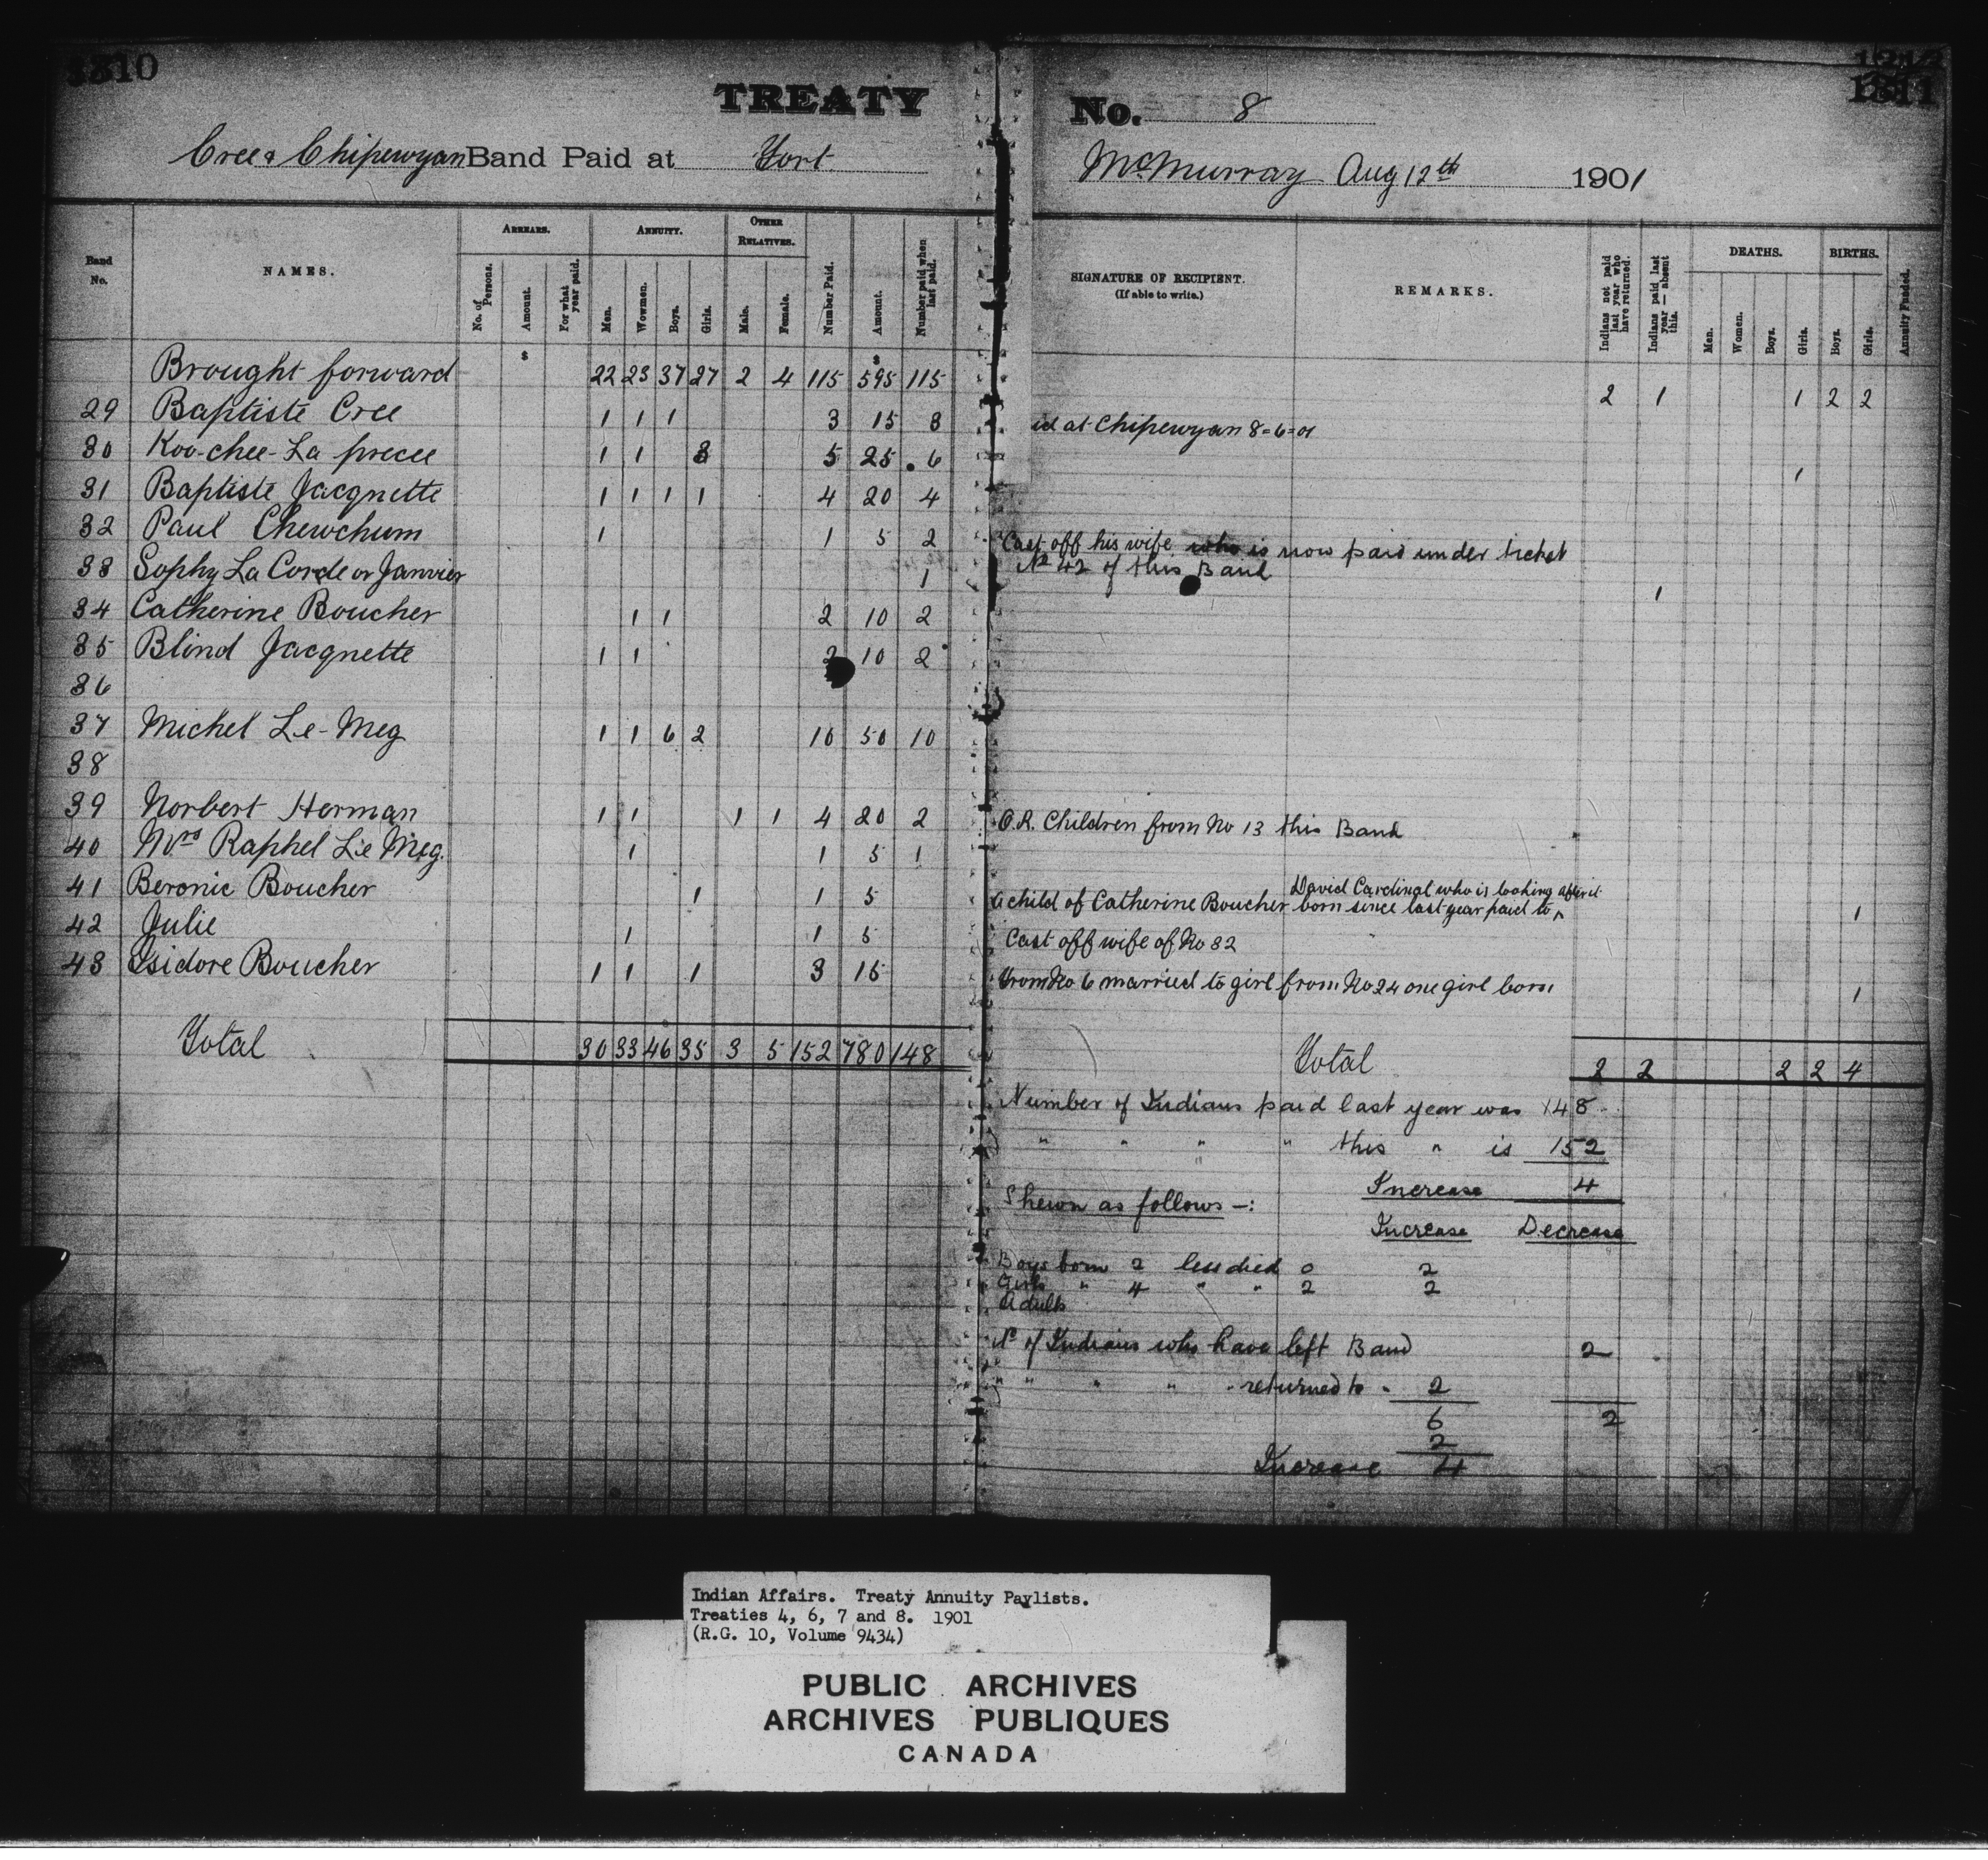 1310
TREATY No. 8
Cree & Chipewyan Band Paid at Fort McMurray Aug 12th 1901
Band No.
NAMES.
ARREARS.
No. of Persons.
Amount.
For what year paid.
ANNUITY.
Men.
Wowmen.
Boys.
Girls.
OTHER RELATIVES.
Male.
Female.
Number Paid.
Amount.
Number paid when last paid.
SIGNATURE OF RECIPIENT.
(If able to write.)
REMARKS.
Indians not paid last year who have returned.
Indians paid last year — absent this.
DEATHS.
Men.
Women.
Boys.
Girls.
BIRTHS.
Boys.
Girls.
Annuity Funded.
$ $
Brought forward 22 23 37 27 2 4 115 595 115 2 1 1 2 2
29 Baptiste Cree 1 1 1 3 15 3 id at Chipewyan 8-6-01
30 Koo-chee-La precee 1 1 3 5 25 6 1
31 Baptiste Jacqnette 1 1 1 1 4 20 4
32 Paul Chewchum 1 1 5 2 Cast off his wife who is now paid under ticket
No 42 of this Band
33 Sophy La Corde or Janvier 1 1
34 Catherine Boucher 1 1 2 10 2
35 Blind Jacqnette 1 1 2 10 2
36
37 Michel Le-Meg 1 1 6 2 10 50 10
38
39 Norbert Herman 1 1 1 1 4 20 2 O.R. Children from No 13 this Band
40 Mrs Raphel Le Meg. 1 1 5 1
41 Beronic Boucher 1 1 5 a child of Catherine Boucher born since last year paid to David Cardinal who is looking after it 1
42 Julie 1 1 5 Cast off wife of No 32
43 Isidore Boucher 1 1 1 3 15 from No 6 married to girl from No 24 one girl born 1
Total 30 33 46 35 3 5 152 780 148 Total 2 2 2 2 4
Number of Indians paid last year was 148
" " " " this " is 152
Increase 4
Shewn as follows -:
Increase Decrease
Boys born 2 less died 0 2
Girls " 4 " " 2 2
Adults
No of Indians who have left Band 2
" " " " returned to " 2
6 2
2
Increase 4
Indian Affairs. Treaty Annuity Paylists.
Treaties 4, 6, 7 and 8. 1901
(R.G. 10, Volume 9434)
PUBLIC ARCHIVES
ARCHIVES PUBLIQUES
CANADA